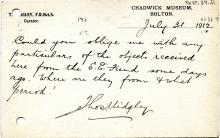 CHADWICK MUSEUM,
BOLTON.
Curator.
July 31 1912
Could you oblige me with any
particulars of the objects received
here from the E.E. Fund some days
ago. Where are they from & what
period?
Thos Midgley